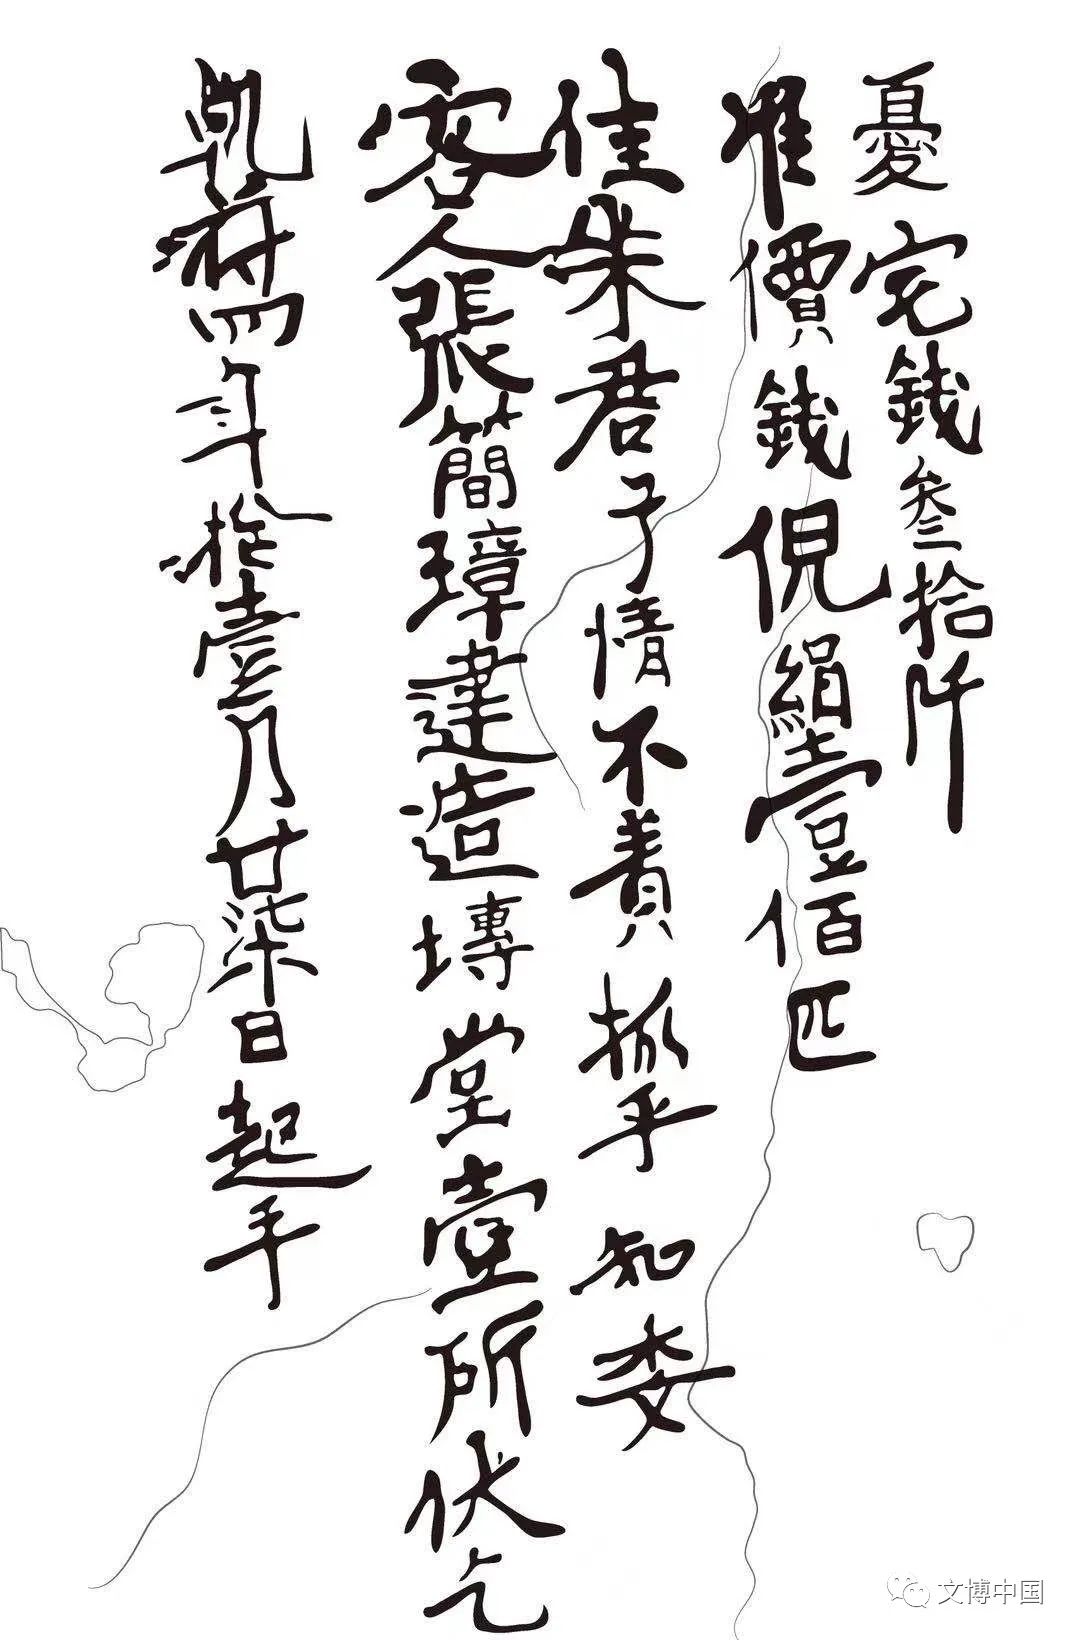 憂宅錢叁拾阡
准價錢伣絹壹佰匹
佳朱君子情不責 抓乎 知委
客人張簡璋建造塼堂壹所伏乞
乹符四年拾壹月廿柒日起手
文博中国